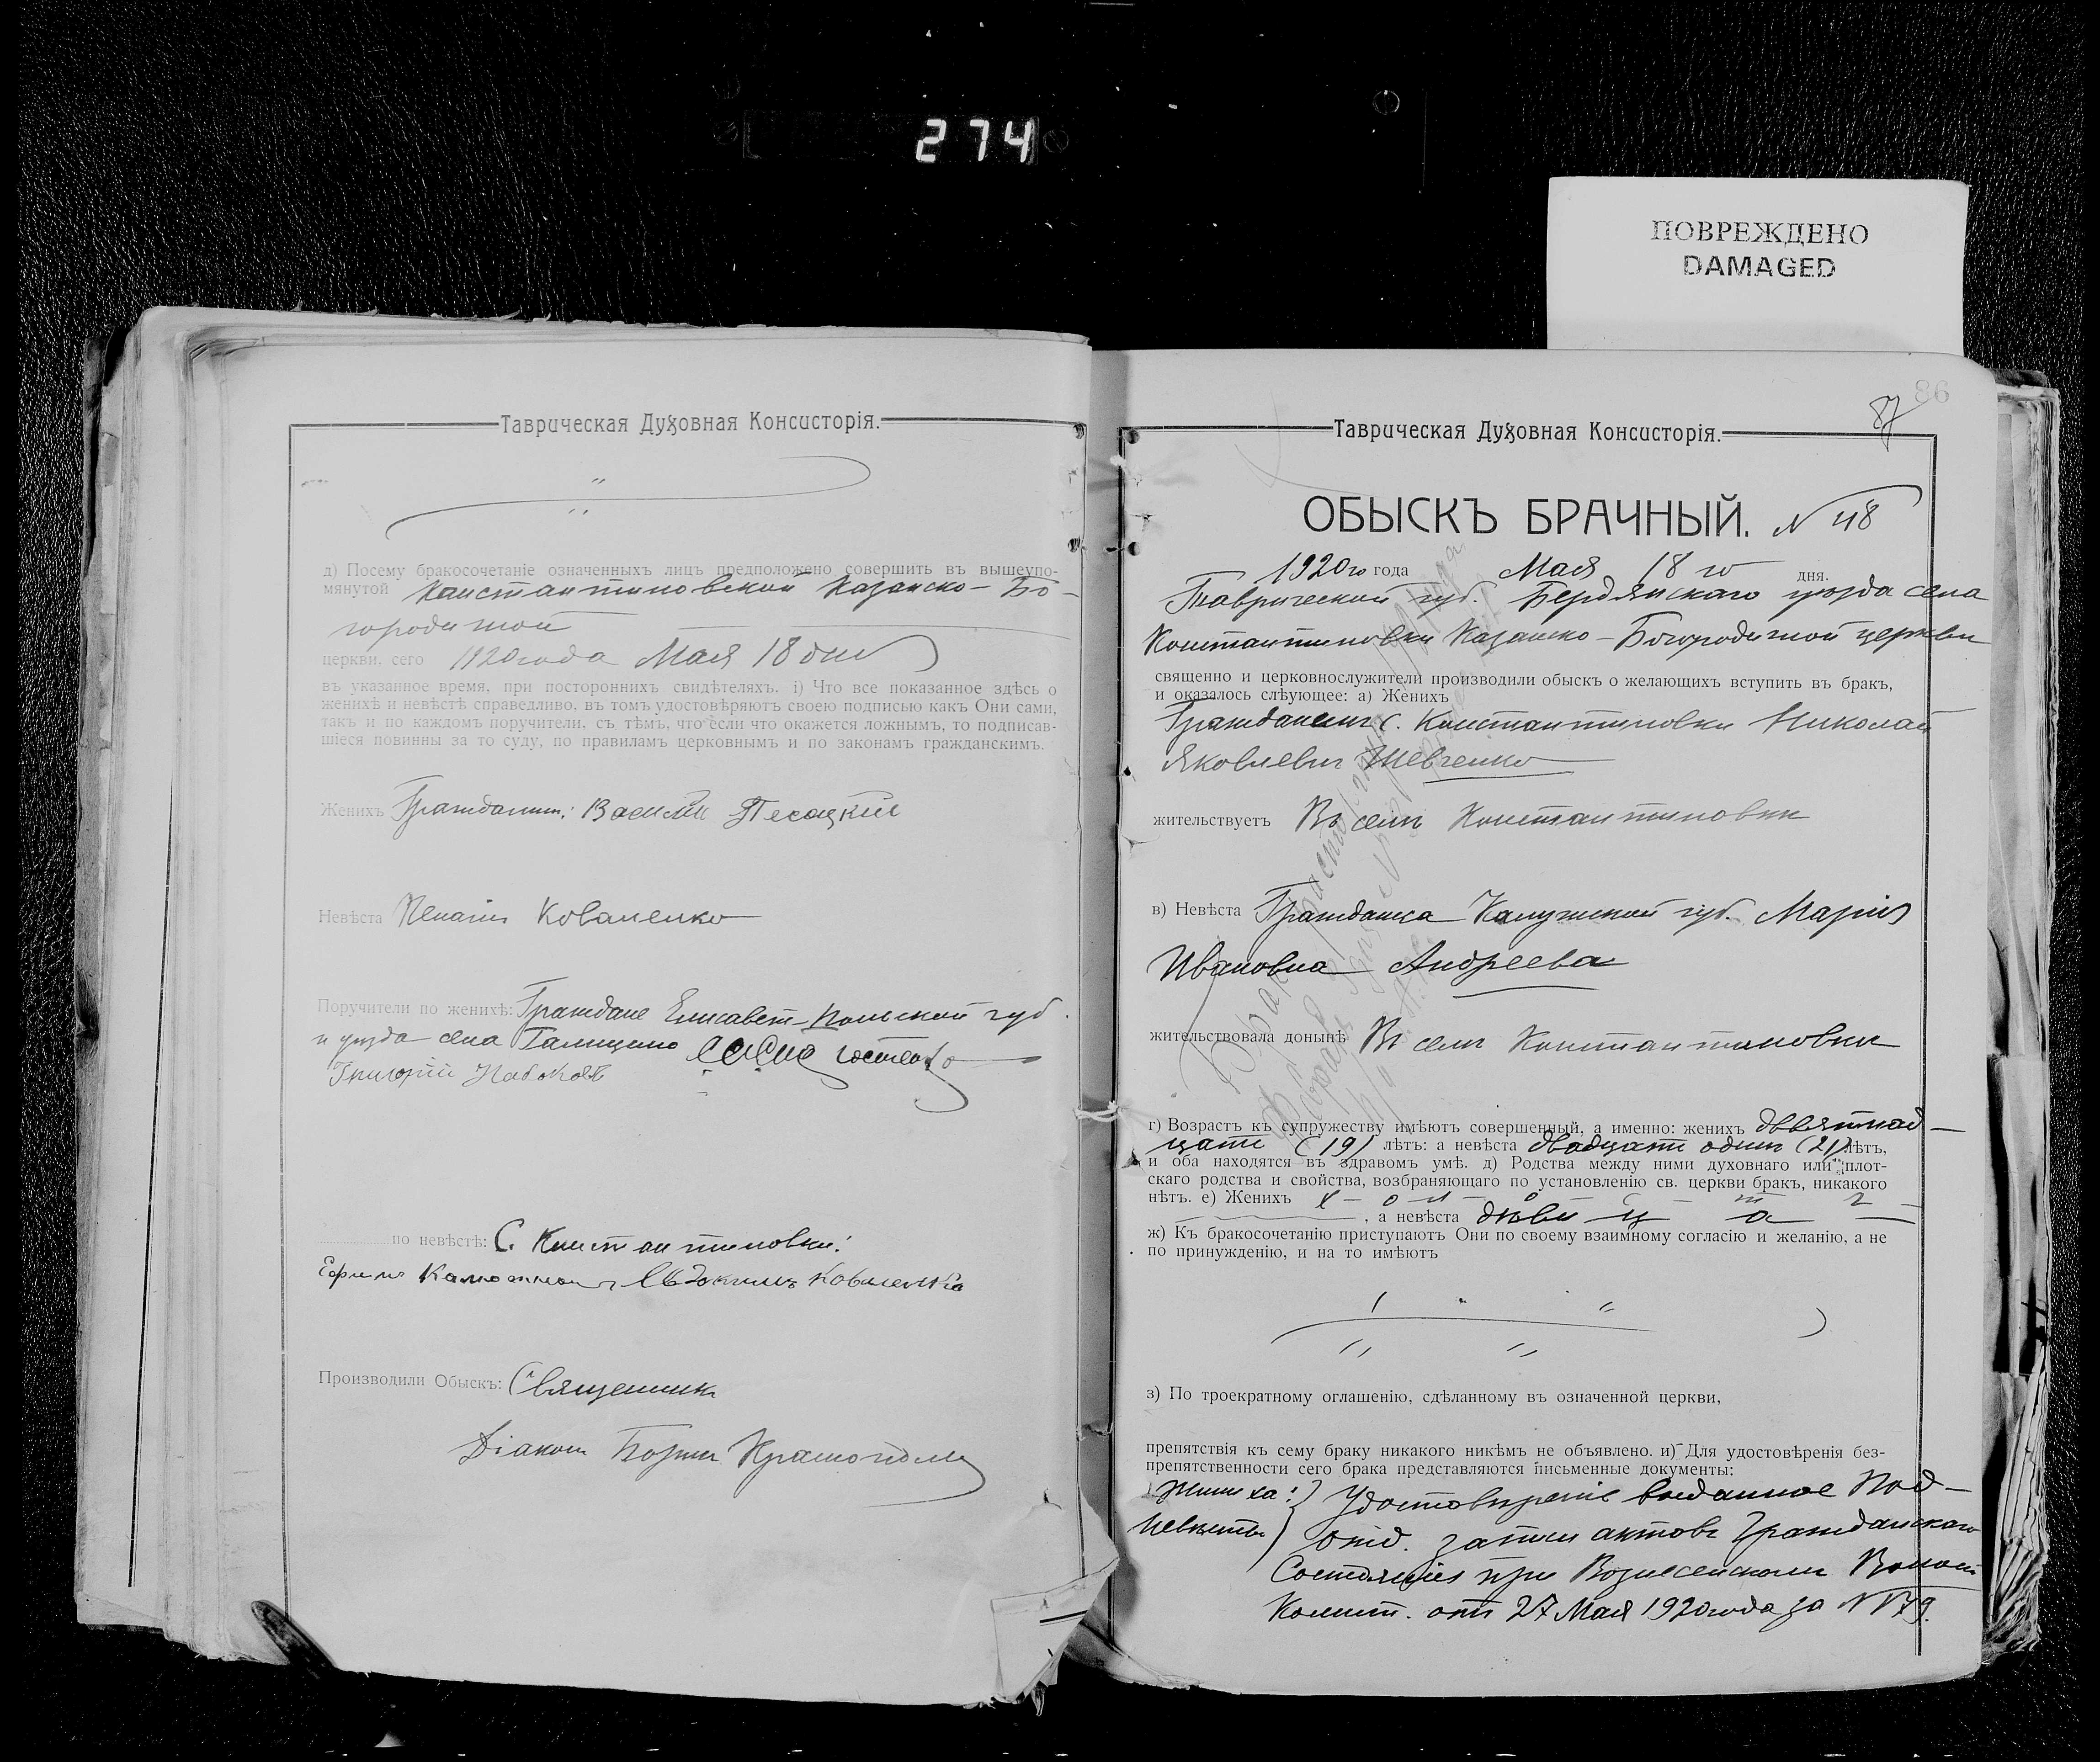 274
ПОВРЕЖДЕНО
DAMAGED
Таврическая Духовная Консисторія.
д) Посему бракосочетаніе означенныхъ лицъ предположено совершить въ вышеупо-
мянутой Константиновской Казанско-Бо-
городичной
церкви, сего 1920 года Мая 18 дня
въ указанное время, при постороннихъ свидѣтеляхъ. і) Что все показанное здѣсь о
женихѣ и невѣстѣ справедливо, въ томъ удостовѣряютъ своею подписью какъ Они сами,
такъ и по каждомъ поручители, съ тѣмъ, что если что окажется ложнымъ, то подписав-
шіеся повинны за то суду, по правиламъ церковнымъ и по законамъ гражданскимъ.
Женихъ Гражданин: Василий Песоцкий
Невѣста Коваленко
Поручители по женихѣ: Граждане Елисавет-польской губ.
и уѣзда села
Григорий Набоковъ
по невѣстѣ: С. Константиновки:
Ефимъ Евдокимъ Коваленко
Производили Обыскъ: Священникъ
Діаконъ Борисъ
86
87
Таврическая Духовная Консисторія.
ОБЫСКЪ БРАЧНЫЙ. N 48
1920го года Мая 18го дня.
Таврической губ. Бердянскаго уѣзда села
Константиновки Казанско-Богородичной церкви
священно и церковнослужители производили обыскъ о желающихъ вступить въ бракъ,
и оказалось слѣующее: а) Женихъ
Гражданинъ с. Константиновки Николай
Яковлевичъ Шевченко
жительствуетъ Въ селѣ Константиновки
в) Невѣста Гражданка Калужской губ. Марія
Ивановна Андреева
жительствовала донынѣ Въ селѣ Константиновки
г) Возрастъ къ супружеству имѣютъ совершенный, а именно: женихъ девятнад-
цати (19) лѣтъ: а невѣста двадцати одинъ (21) лѣтъ,
и оба находятся въ здравомъ умѣ. д) Родства между ними духовнаго или плот-
скаго родства и свойства, возбраняющаго по установленію св. церкви бракъ, никакого
нѣтъ. е) Женихъ х-о-л-о-с-т-ъ
, а невѣста дѣвица
ж) Къ бракосочетанію приступаютъ Они по своему взаимному согласію и желанію, а не
по принужденію, и на то имѣютъ
з) По троекратному оглашенію, сдѣланному въ означенной церкви,
препятствія къ сему браку никакого никѣмъ не объявлено. и) Для удостовѣренія без-
препятственности сего брака представляются письменные документы:
Жениха: } Удостовѣреніе выданное Под-
Невѣсты } отд. записи актовъ Гражданскаго
Состоянія при Вознесенскомъ Волост
Комит. отъ 27 Мая 1920 года за N 179.